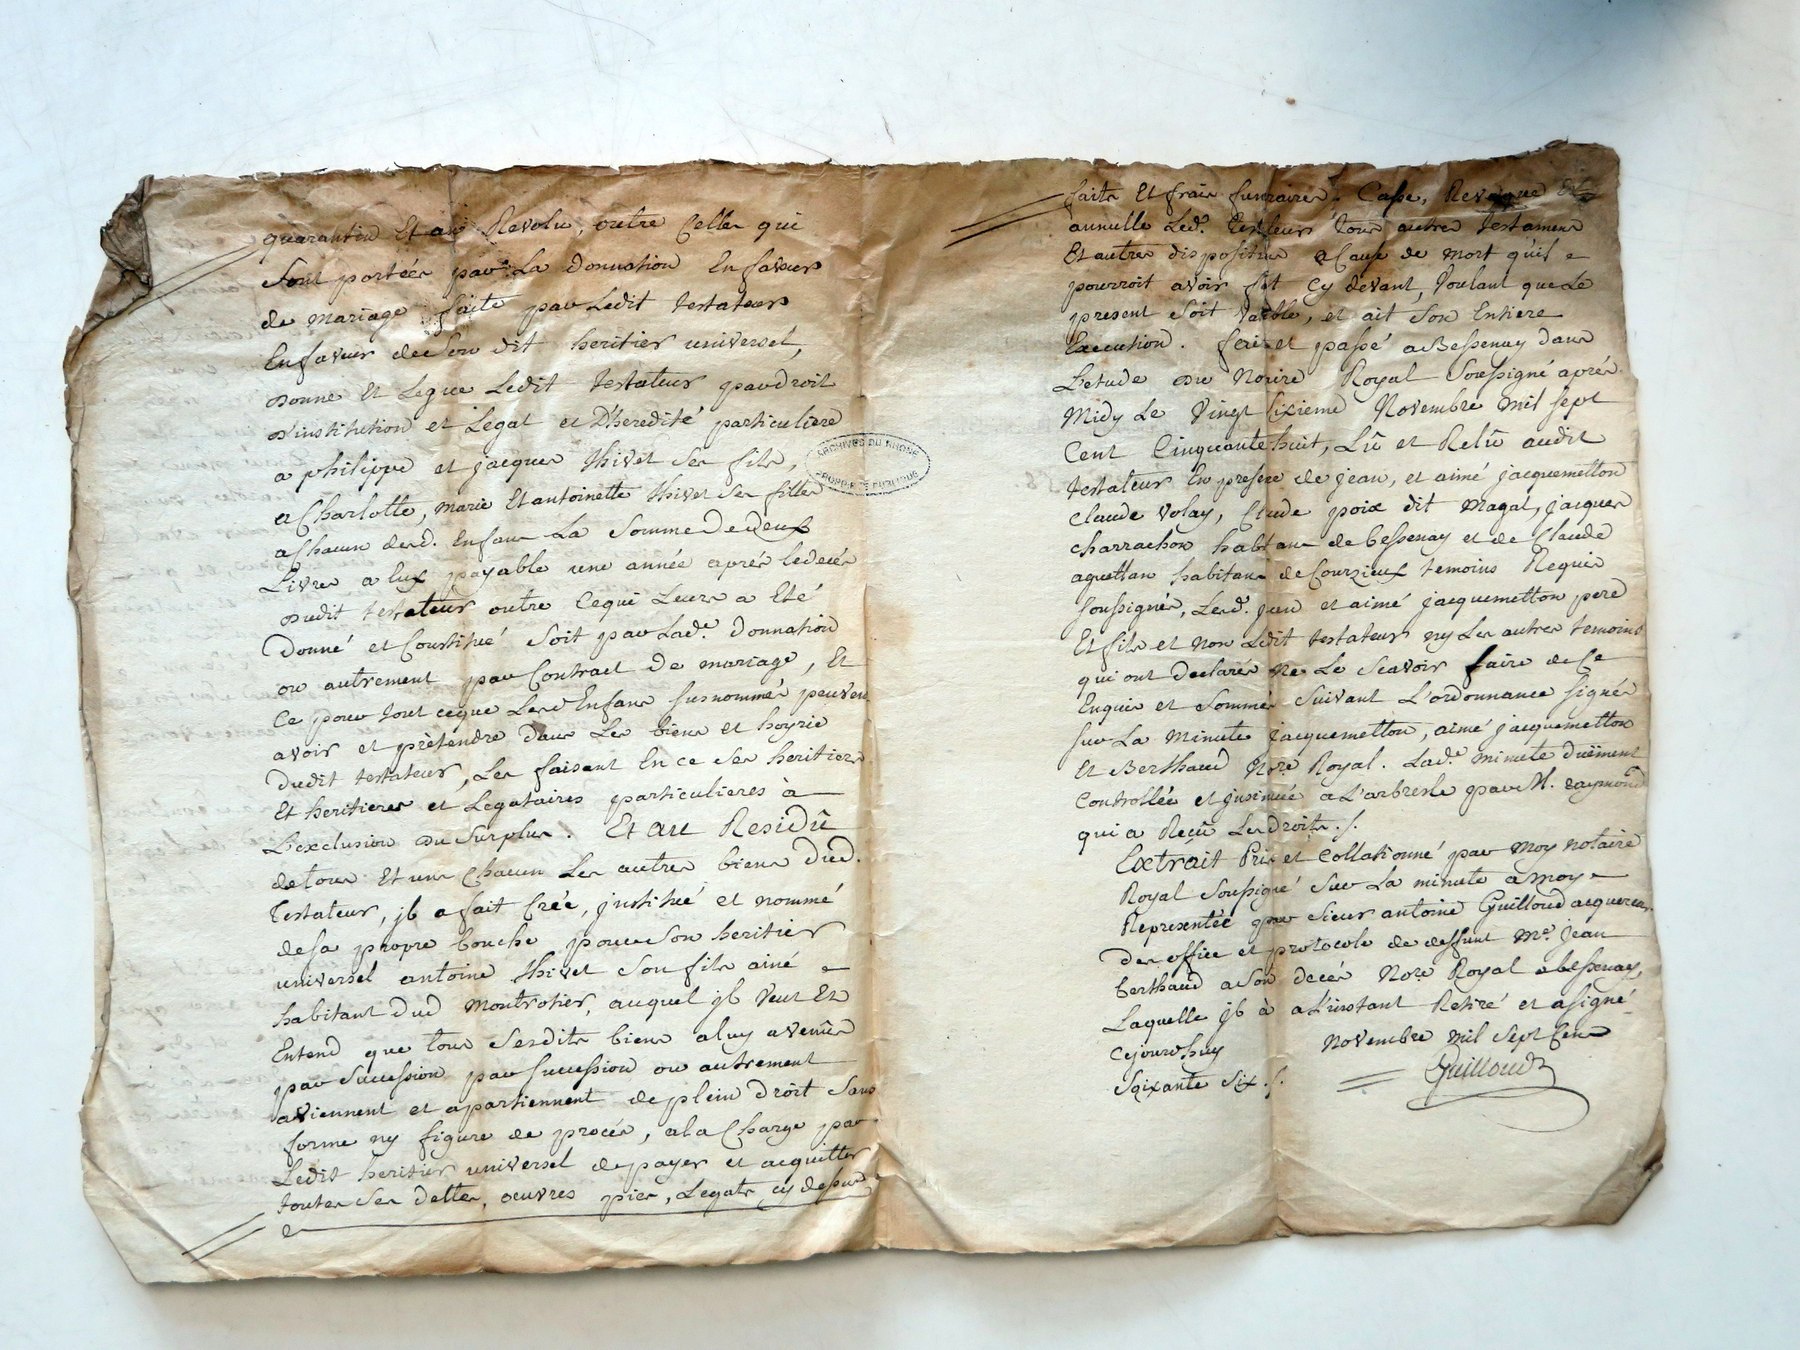 quarantin Et an Revolu, outre Celles qui
Sont portées par La donnation En faveur
de mariage faite par Ledit testateur
En faveur de Son dit heritier universel,
Donne Et Legue Ledit testateur par droit
D'institution et Legat et D'heredité particuliere
a philippe et jacques thivet Ses fils,
a Charlotte, marie Et antoinette thivet Ses filles
a Chacun desd. Enfans La Somme de deux
Livres a Eux payable une année après le decés
dudit testateur outre Ceque Leurs a Eté
Donné et Constitué Soit par Lad.e Donnation
ou autrement par Contract De mariage, Et
Ce pour tout ceque Lesd Enfans Susnommés peuvent
avoir et prètendre dans Les biens et hoyrie
Dudit testateur, Les faisant En ce Ses heritiers
Et heritieres et Legataires particulieres à
L'exclusion du Surplus. Et au Residû
de tous Et uns Chacun Les autres biens Dud.
Testateur, jl a fait Créé, justitué et nommé
de Sa propre bouche pour Son heritier
universel antoine thivet Son fils ainé
habitant Dud Montrotier, auquel jl Veut Et
Entend que tous Sesdits biens a luy avenûs
par Succession par Succession ou autrement
aviennent et apartiennent de plein droit Sans
forme ny figure de procés, a la Charge par
Ledit heritier universel de payer et acquitter
toutes Ses dettes, oeuvres pies, Legats, cy dessus
ARCHIVES DU RHONE
PROPRIETE PUBLIQUE
faits Et frais funeraires, Casse, Revoque Et
annulle Led. testateur tous autres testamens
Et autres dispositions a Cause de mort qu'il
pourroit avoir fait Cy devant, Voulant que Le
present Soit Vaible, et ait Son Entiere
Execution. fait et passé a Bessenay dans
L'etude du Noire Royal Soussigné aprés
Midy Le Vingt Sixieme Novembre mil Sept
Cent Cinquante huit, Lû et Relû audit
testateur En presence de jean, et aimé jacquemetton
Claude Volay, Claude poix dit Magal, jacques
Charrachon habitans de bessenay et de Claude
aquettan habitans de Courzieux temoins Requis
Soussignés, Lesd. jean et aimé jacquemetton pere
Et fils et non Ledit testateur ny Les autres temoins
qui ont declarés ne Le Scavoir faire de Ce
Enquis et Sommés Suivant L'ordonnance Signés
Sur La Minute jacquemetton, aimé jacquemetton
Et Berthaud No.re Royal. Lad.e minute duëment
Controllée et jnsinuée a L'arbresle par M. raymond
qui a Reçû Les droits ./.
Extrait Pris et Collationné par Moy notaire
Royal Soussigné Sur La minute a moy
Representée par Sieur antoine Guilloud acquereur
Des office et protocole de deffunt M.e jean
berthaud a Son decés No.re Royal a bessenay,
Laquelle jl à a L'instant Retiré et a Signé
Cejourdhuy Novembre mil Sept Cens
Soixante Six ./.
Guilloud